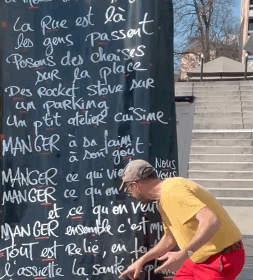 La Rue est là
les gens passent
Posons des choises
sur la place
Des Rocket Stove sur
un parking
Un p'tit atelier cuisine
MANGER à sa faim
à son goût
MANGER ce qui vi
MANGER ce qu'en
et ce qu'on veu
MANGER ensemble c'est mi
Tout est Relié, en
l'assiette la santé
Nous
Vous